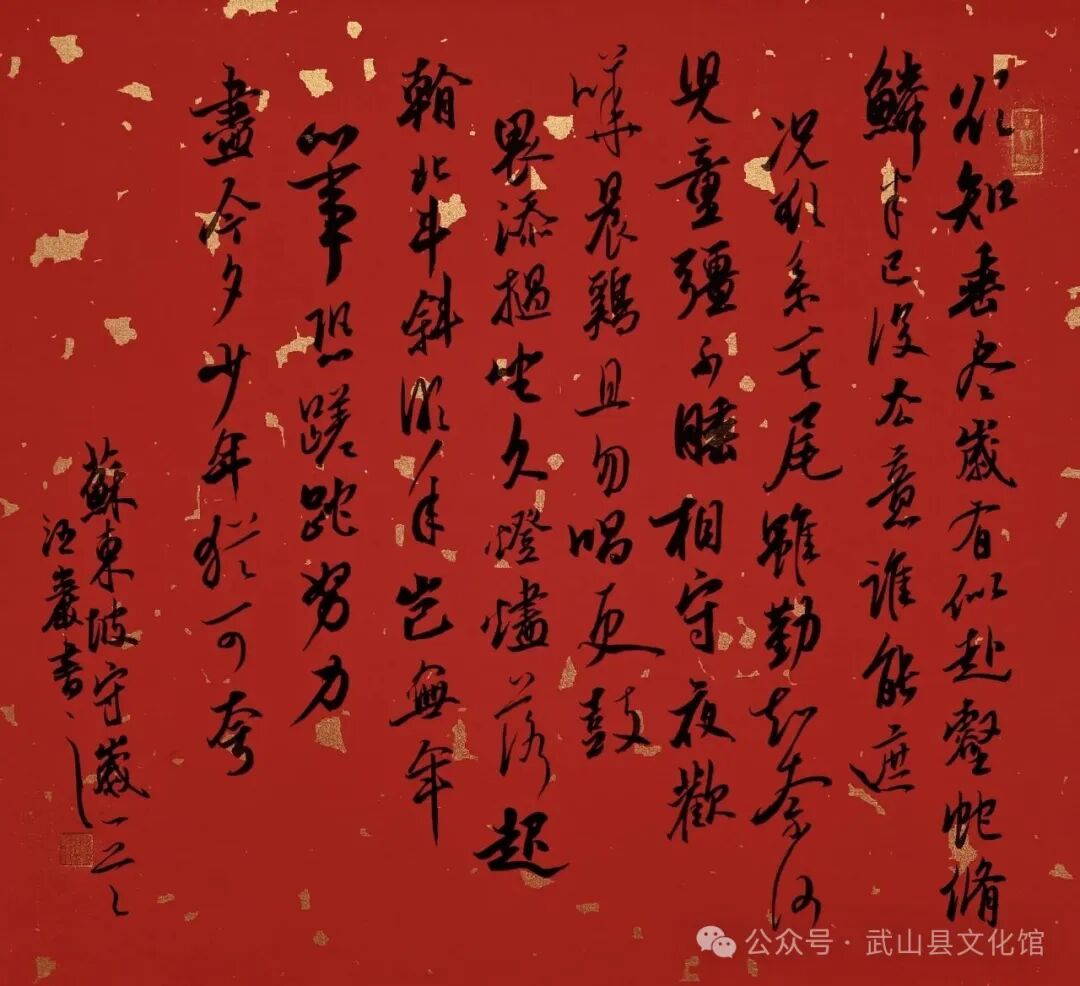 欲知垂尽歲有似赴壑蛇脩
鱗半已没去意誰能遮
况欲系其尾雖勤知奈何
兒童彊不睡相守夜歡
嘩晨鷄且勿唱更鼓
畏添撾坐久燈燼落起
看北斗斜明年岂無年
心事恐蹉跎努力
盡今夕少年猶可夸
蘇東坡守歲一首
汪書
公众号·武山县文化馆